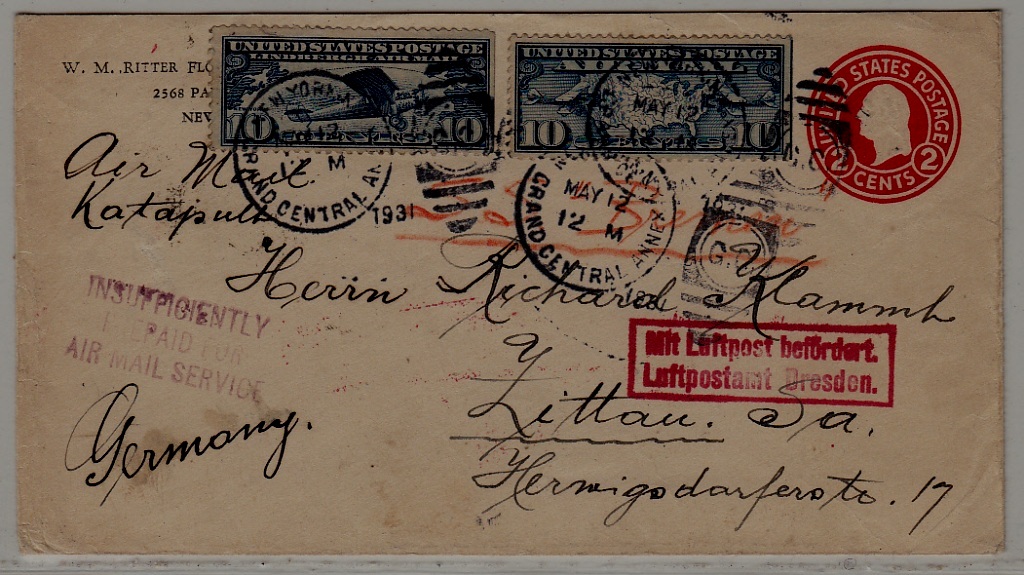 W. M. RITTER FLO
2568 PA
NEW
UNITED STATES POSTAGE
LINDBERGH AIR MAIL
10 10
UNITED STATES POSTAGE
10 10
UNITED STATES POSTAGE
2 CENTS 2
NEW YORK, N.Y.
12 M
GRAND CENTRAL ANNEX
1931
MAY 12
12 M
GRAND CENTRAL ANNEX
MAY 12
12 M
Air Mail.
Katapult
Herrn Richard Klammt
Zittau. Sa.
Herwigsdorferstr. 17
Germany.
INSUFFICIENTLY
PREPAID FOR
AIR MAIL SERVICE
Mit Luftpost befördert.
Luftpostamt Dresden.